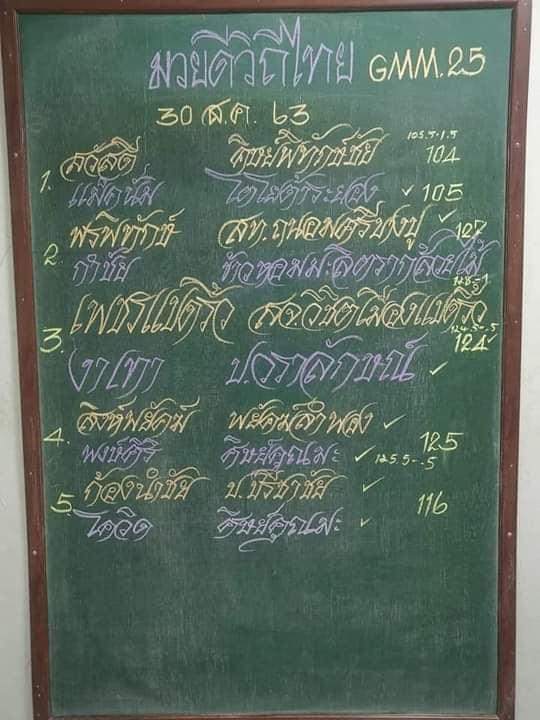 มวยดีวิถีไทย GMM.25
30 ส.ค. 63
1. สวัสดี ศิษย์พิทักษ์ชัย 105.5-1.5 104
แม็คนั่ม โตโยต้าระยอง ✓ 105
2. พรพิทักษ์ สท.ถนอมศรีบางปู ✓ 127
กำชัย ข้าวหอมมะลิตรากล้วยไม้
3. เพชรแปดริ้ว สจ.วิชิตเมืองแปดริ้ว 124.5-.5 124 ✓
งาเทา ป.วราลักษณ์ ✓
4. สิงห์พยัคฆ์ พยัคฆ์ลำพอง ✓ 125
พงษ์ศิริ ศิษย์คุณเมะ ✓ 125.5-.5
5. ก้องนำชัย บ.ชีรชาชัย ✓ 116
โควิด ศิษย์คุณเมะ ✓